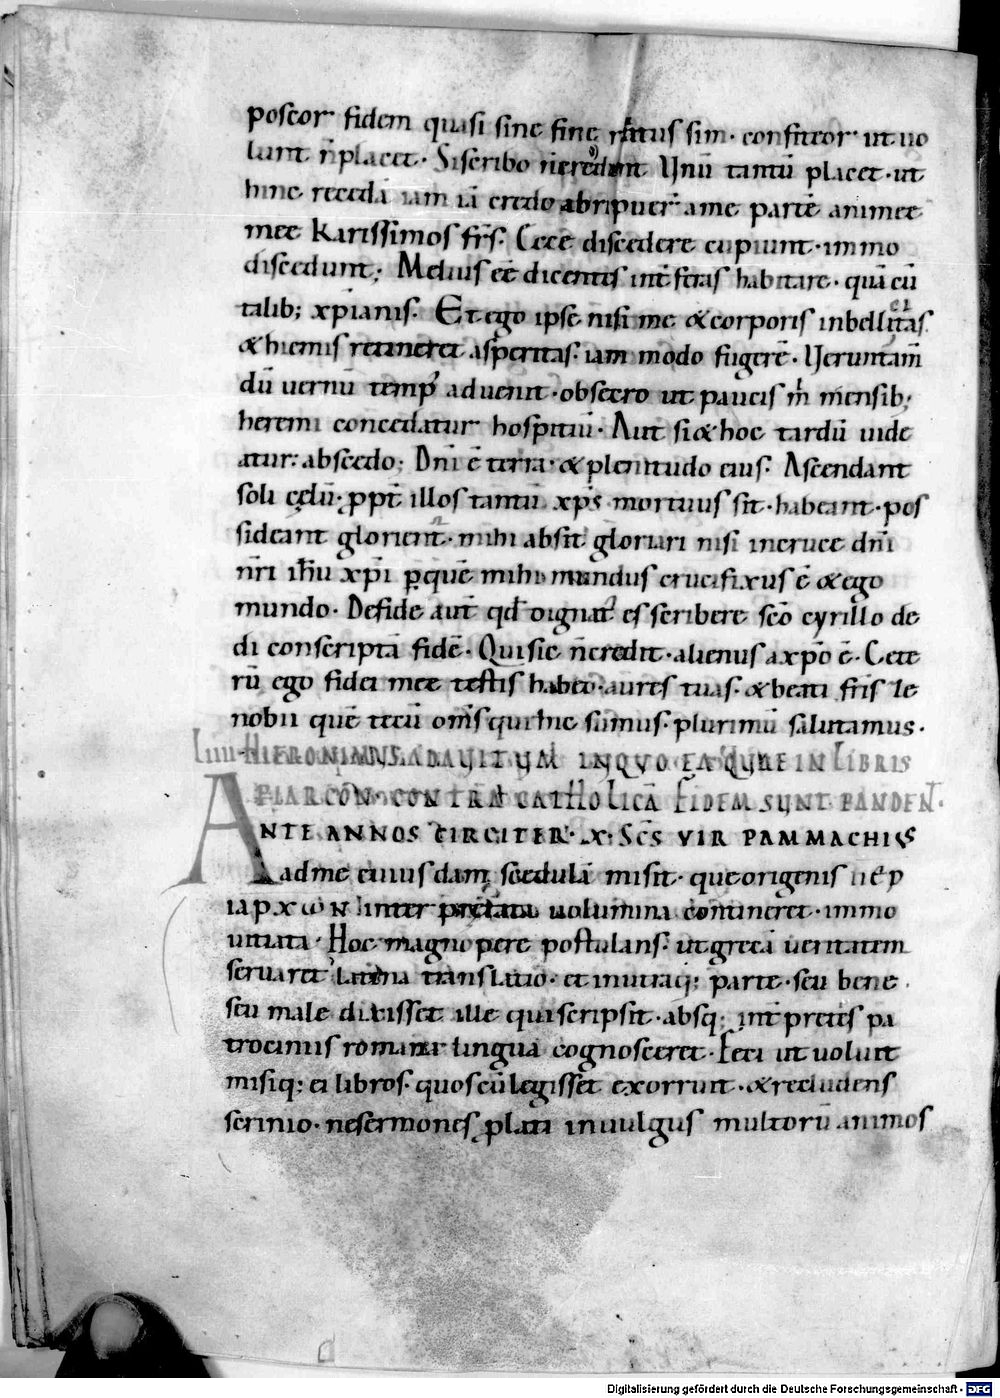 poscor fidem quasi sine fine, ritus sim. confiteor ut uo
lunt n̄placet. Siscribo n̄credunt Unū tantū placet. ut
hinc recedā iam iā credo abripuer̄ ame partē animee
mee karissimos frs̄. Ecce discedere cupiunt. immo
discedunt; Melius eē dicentes int̄ feras habitare. quā cū
talib; xp̄ianis. Et ego ipse nisi me & corporis inbellitas
& hiemis retineret asperitas. iam modo fugerē. Ueruntam̄
dū uernū temp' aduenit. obsecro ut paucis m̄ mensib;
heremi concedatur hospitiū. Aut si & hoc tardū uide
atur: abscedo; Dn̄i ē terra. & plenitudo eius. Ascendant
soli cęlū. ppt̄ illos tantū xp̄s mortuus sit. habeant. pos
sideant glorient̄. mihi absit gloriari nisi incruce dn̄i
nr̄i ihū xp̄i p̱quē mihi mundus crucifixus ē & ego
mundo. Defide aut̄ qd̄ dignat' es scribere sc̄o cyrillo de
di conscriptā fidē. Quisic n̄credit. alienus axp̄o ē. Cete
rū ego fidei mee testis habeo. aures tuas. & beati fr̄is Ze
nobii quē tecū om̄s quihic sumus. plurimū salutamus.
LIIII HIERONIMUS ADAUITUM INQUO EA QUAE IN LIBRIS
PIARCON. CONTRA CATHOLICĀ FIDEM SUNT PANDENT.
ANTE ANNOS CIRCITER. X. SCS VIR PAMMACHIUS
adme cuiusdam scedulā misit. que origenis πΕΡ
ιαρχων interpretata uolumina contineret. immo
uitiata. Hoc magnopere postulans. ut grecā ueritatem
seruaret latina translatio. et inutraq; parte. seu bene
seu male dixisset ille qui scripsit. absq; int̄pretis pa
trociniis romana lingua cognosceret. Feci ut uoluit
misiq; ei libros. quos cū legisset exorruit. & recludens
scrinio. nesermones p̱lati inuulgus multorū animos
Digitalisierung gefördert durch die Deutsche Forschungsgemeinschaft - DFG